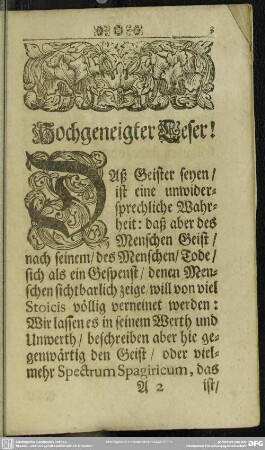 3
Hochgeneigter Leser!
DAß Geister seyen/
ist eine unwider-
sprechliche Wahr-
heit: daß aber des
Menschen Geist/
nach seinem/ des Menschen/ Tode/
sich als ein Gespenst/ denen Men-
schen sichtbarlich zeige/ will von viel
Stoicis völlig verneinet werden:
Wir lassen es in seinem Werth und
Unwerth/ beschreiben aber hie ge-
genwärtig den Geist/ oder viel-
mehr Spectrum Spagiricum, das
A 2 ist/